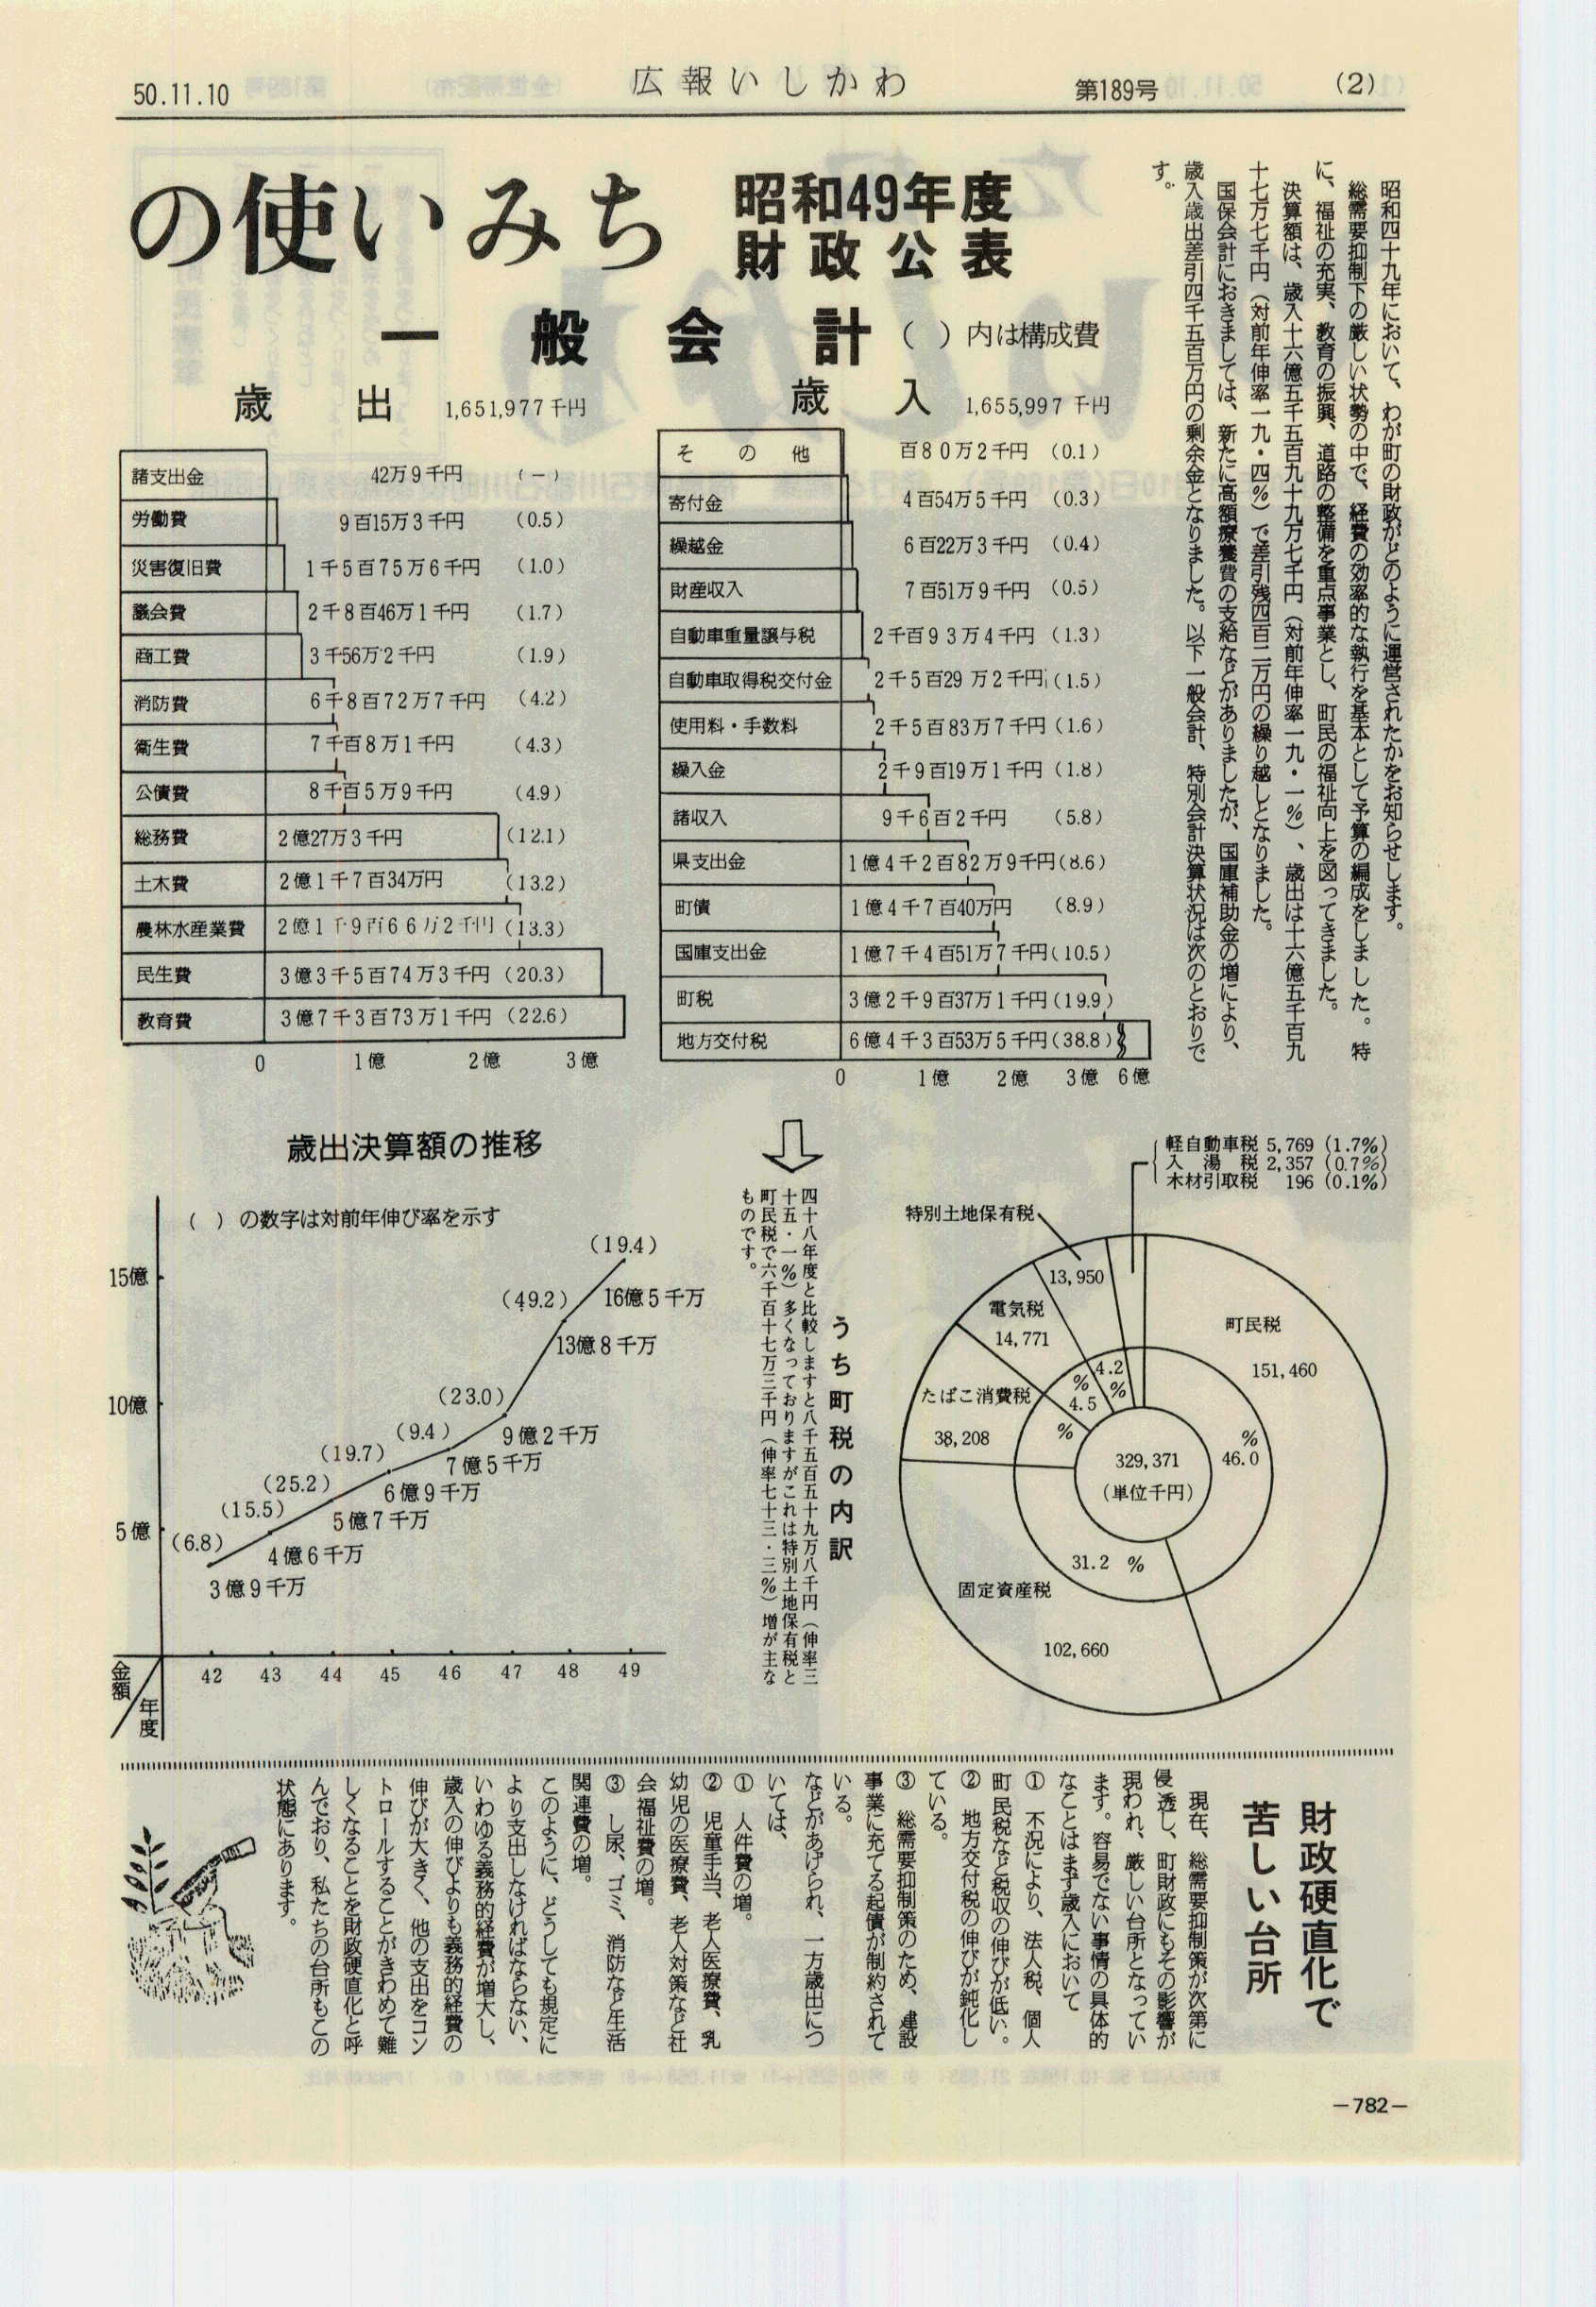 50.11.10
広報いしかわ
第189号
(2)
の使いみち
昭和49年度
財政公表
昭和四十九年において、わが町の財政がどのように運営されたかをお知らせします。
総需要抑制下の厳しい状勢の中で、経費の効率的な執行を基本として予算の編成をしました。特
に、福祉の充実、教育の振興、道路の整備を重点事業とし、町民の福祉向上を図ってきました。
決算額は、歳入十六億五千五百九十九万七千円(対前年伸率一九・一%)、歳出は十六億五千百九
十七万七千円(対前年伸率一九・四%)で差引残四百二万円の繰り越しとなりました。
国保会計におきましては、新たに高額療養費の支給などがありましたが、国庫補助金の増により、
歳入歳出差引四千五百万円の剰余金となりました。以下一般会計、特別会計決算状況は次のとおりで
す。
一般会計 ( )内は構成費
歳出 1,651,977千円
諸支出金 42万9千円 (-)
労働費 9百15万3千円 (0.5)
災害復旧費 1千5百75万6千円 (1.0)
議会費 2千8百46万1千円 (1.7)
商工費 3千56万2千円 (1.9)
消防費 6千8百72万7千円 (4.2)
衛生費 7千百8万1千円 (4.3)
公債費 8千百5万9千円 (4.9)
総務費 2億27万3千円 (12.1)
土木費 2億1千7百34万円 (13.2)
農林水産業費 2億1千9百66万2千円 (13.3)
民生費 3億3千5百74万3千円 (20.3)
教育費 3億7千3百73万1千円 (22.6)
0 1億 2億 3億
歳入 1,655,997千円
その他 百80万2千円 (0.1)
寄付金 4百54万5千円 (0.3)
繰越金 6百22万3千円 (0.4)
財産収入 7百51万9千円 (0.5)
自動車重量譲与税 2千百93万4千円 (1.3)
自動車取得税交付金 2千5百29万2千円 (1.5)
使用料・手数料 2千5百83万7千円 (1.6)
繰入金 2千9百19万1千円 (1.8)
諸収入 9千6百2千円 (5.8)
県支出金 1億4千2百82万9千円 (8.6)
町債 1億4千7百40万円 (8.9)
国庫支出金 1億7千4百51万7千円 (10.5)
町税 3億2千9百37万1千円 (19.9)
地方交付税 6億4千3百53万5千円 (38.8)
0 1億 2億 3億 6億
歳出決算額の推移
( )の数字は対前年伸び率を示す
15億
10億
5億
(6.8)
(15.5)
(25.2)
(19.7)
(9.4)
(23.0)
(49.2)
(19.4)
3億9千万
4億6千万
5億7千万
6億9千万
7億5千万
9億2千万
13億8千万
16億5千万
42 43 44 45 46 47 48 49
金額
年度
うち町税の内訳
四十八年度と比較しますと八千五百五十九万八千円(伸率三
十五・一%)多くなっておりますがこれは特別土地保有税と
町民税で六千百十七万三千円(伸率七十三・三%)増が主な
ものです。
軽自動車税 5,769 (1.7%)
入湯税 2,357 (0.7%)
木材引取税 196 (0.1%)
特別土地保有税
13,950
4.2%
電気税
14,771
4.5%
たばこ消費税
38,208
%
町民税
151,460
46.0%
固定資産税
102,660
31.2%
329,371
(単位千円)
財政硬直化で
苦しい台所
現在、総需要抑制策が次第に
侵透し、町財政にもその影響が
現われ、厳しい台所となってい
ます。容易でない事情の具体的
なことはまず歳入において
① 不況により、法人税、個人
町民税など税収の伸びが低い。
② 地方交付税の伸びが鈍化し
ている。
③ 総需要抑制策のため、建設
事業に充てる起債が制約されて
いる。
などがあげられ、一方歳出につ
いては、
① 人件費の増。
② 児童手当、老人医療費、乳
幼児の医療費、老人対策など社
会福祉費の増。
③ し尿、ゴミ、消防など生活
関連費の増。
このように、どうしても規定に
より支出しなければならない、
いわゆる義務的経費が増大し、
歳入の伸びよりも義務的経費の
伸びが大きく、他の支出をコン
トロールすることがきわめて難
しくなることを財政硬直化と呼
んでおり、私たちの台所もこの
状態にあります。
-782-